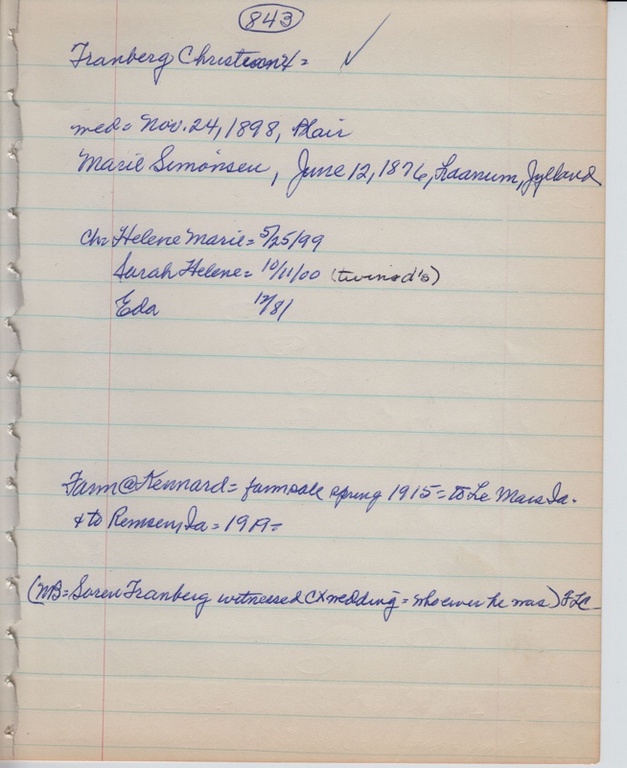 843
Franberg Christian
med = Nov. 24, 1898, Blair
Marie Simonsen, June 12, 1876, Laanum, Jylland
Ch = Helene Marie = 5/25/99
Sarah Helene = 10/11/00 (twin d's)
Eda 12/81
Farm @ Kennard = farm sale spring 1915 = to Le Mars Ia.
& to Remsen, Ia = 1919 =
(NB = Soren Franberg witnessed CX wedding = whoever he was) FLC